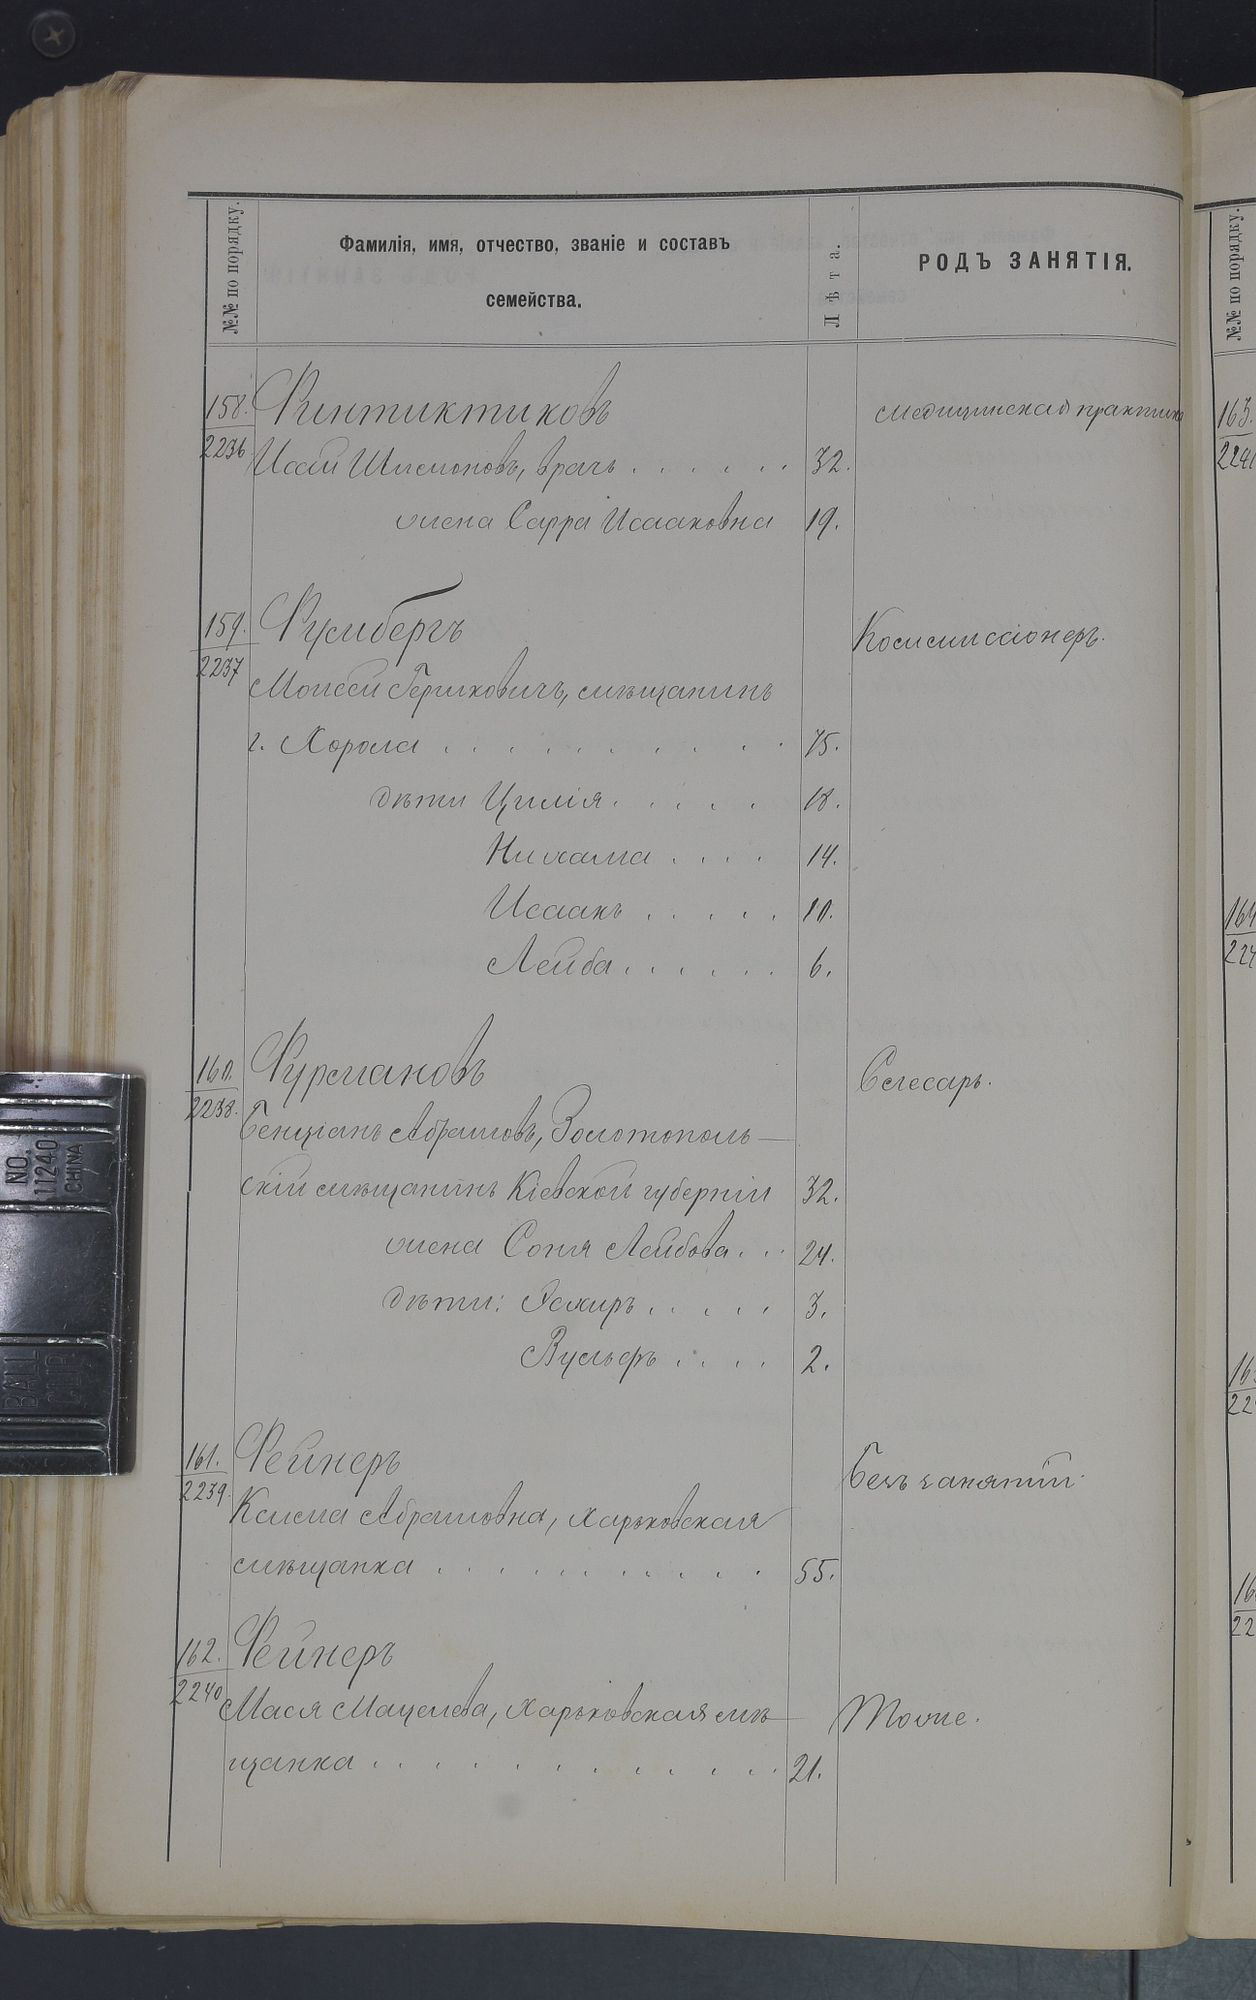 №№ по порядку.
Фамилія, имя, отчество, званіе и составъ
семейства.
Лѣта.
РОДЪ ЗАНЯТІЯ.
№№ по порядку.
158.
2236
Финтиктиковъ
медицинская практика
Исай Шлемоновъ, врачъ . . . . . . 32.
жена Сарра Исааковна 19.
159.
2237
Фумбергъ
Коммиссіонеръ.
Моисей Гершковичъ, мѣщанинъ
г. Хорола . . . . . . . . . . . 75.
дѣти Цилія . . . . . 18.
Нихама . . . . 14.
Исаакъ . . . . . 10.
Лейба . . . . . . 6.
160.
2238.
Фурмановъ
Слесарь.
Бенціанъ Абрамовъ, Золотополь-
скій мѣщанинъ Кіевской губерніи 32.
жена Соня Лейбова . . . 24.
дѣти: Эсхиръ . . . . . 3.
Вульфъ . . . . 2.
161.
2239.
Фейнеръ
Безъ занятій.
Абрамовна, харьковская
мѣщанка . . . . . . . . . . . 55.
162.
2240
Фейнеръ
Мася, харьковская мѣ-
Тоже.
щанка . . . . . . . . . . . . 21.
163.
NO.
11240
CHINA
BALL
CLIP